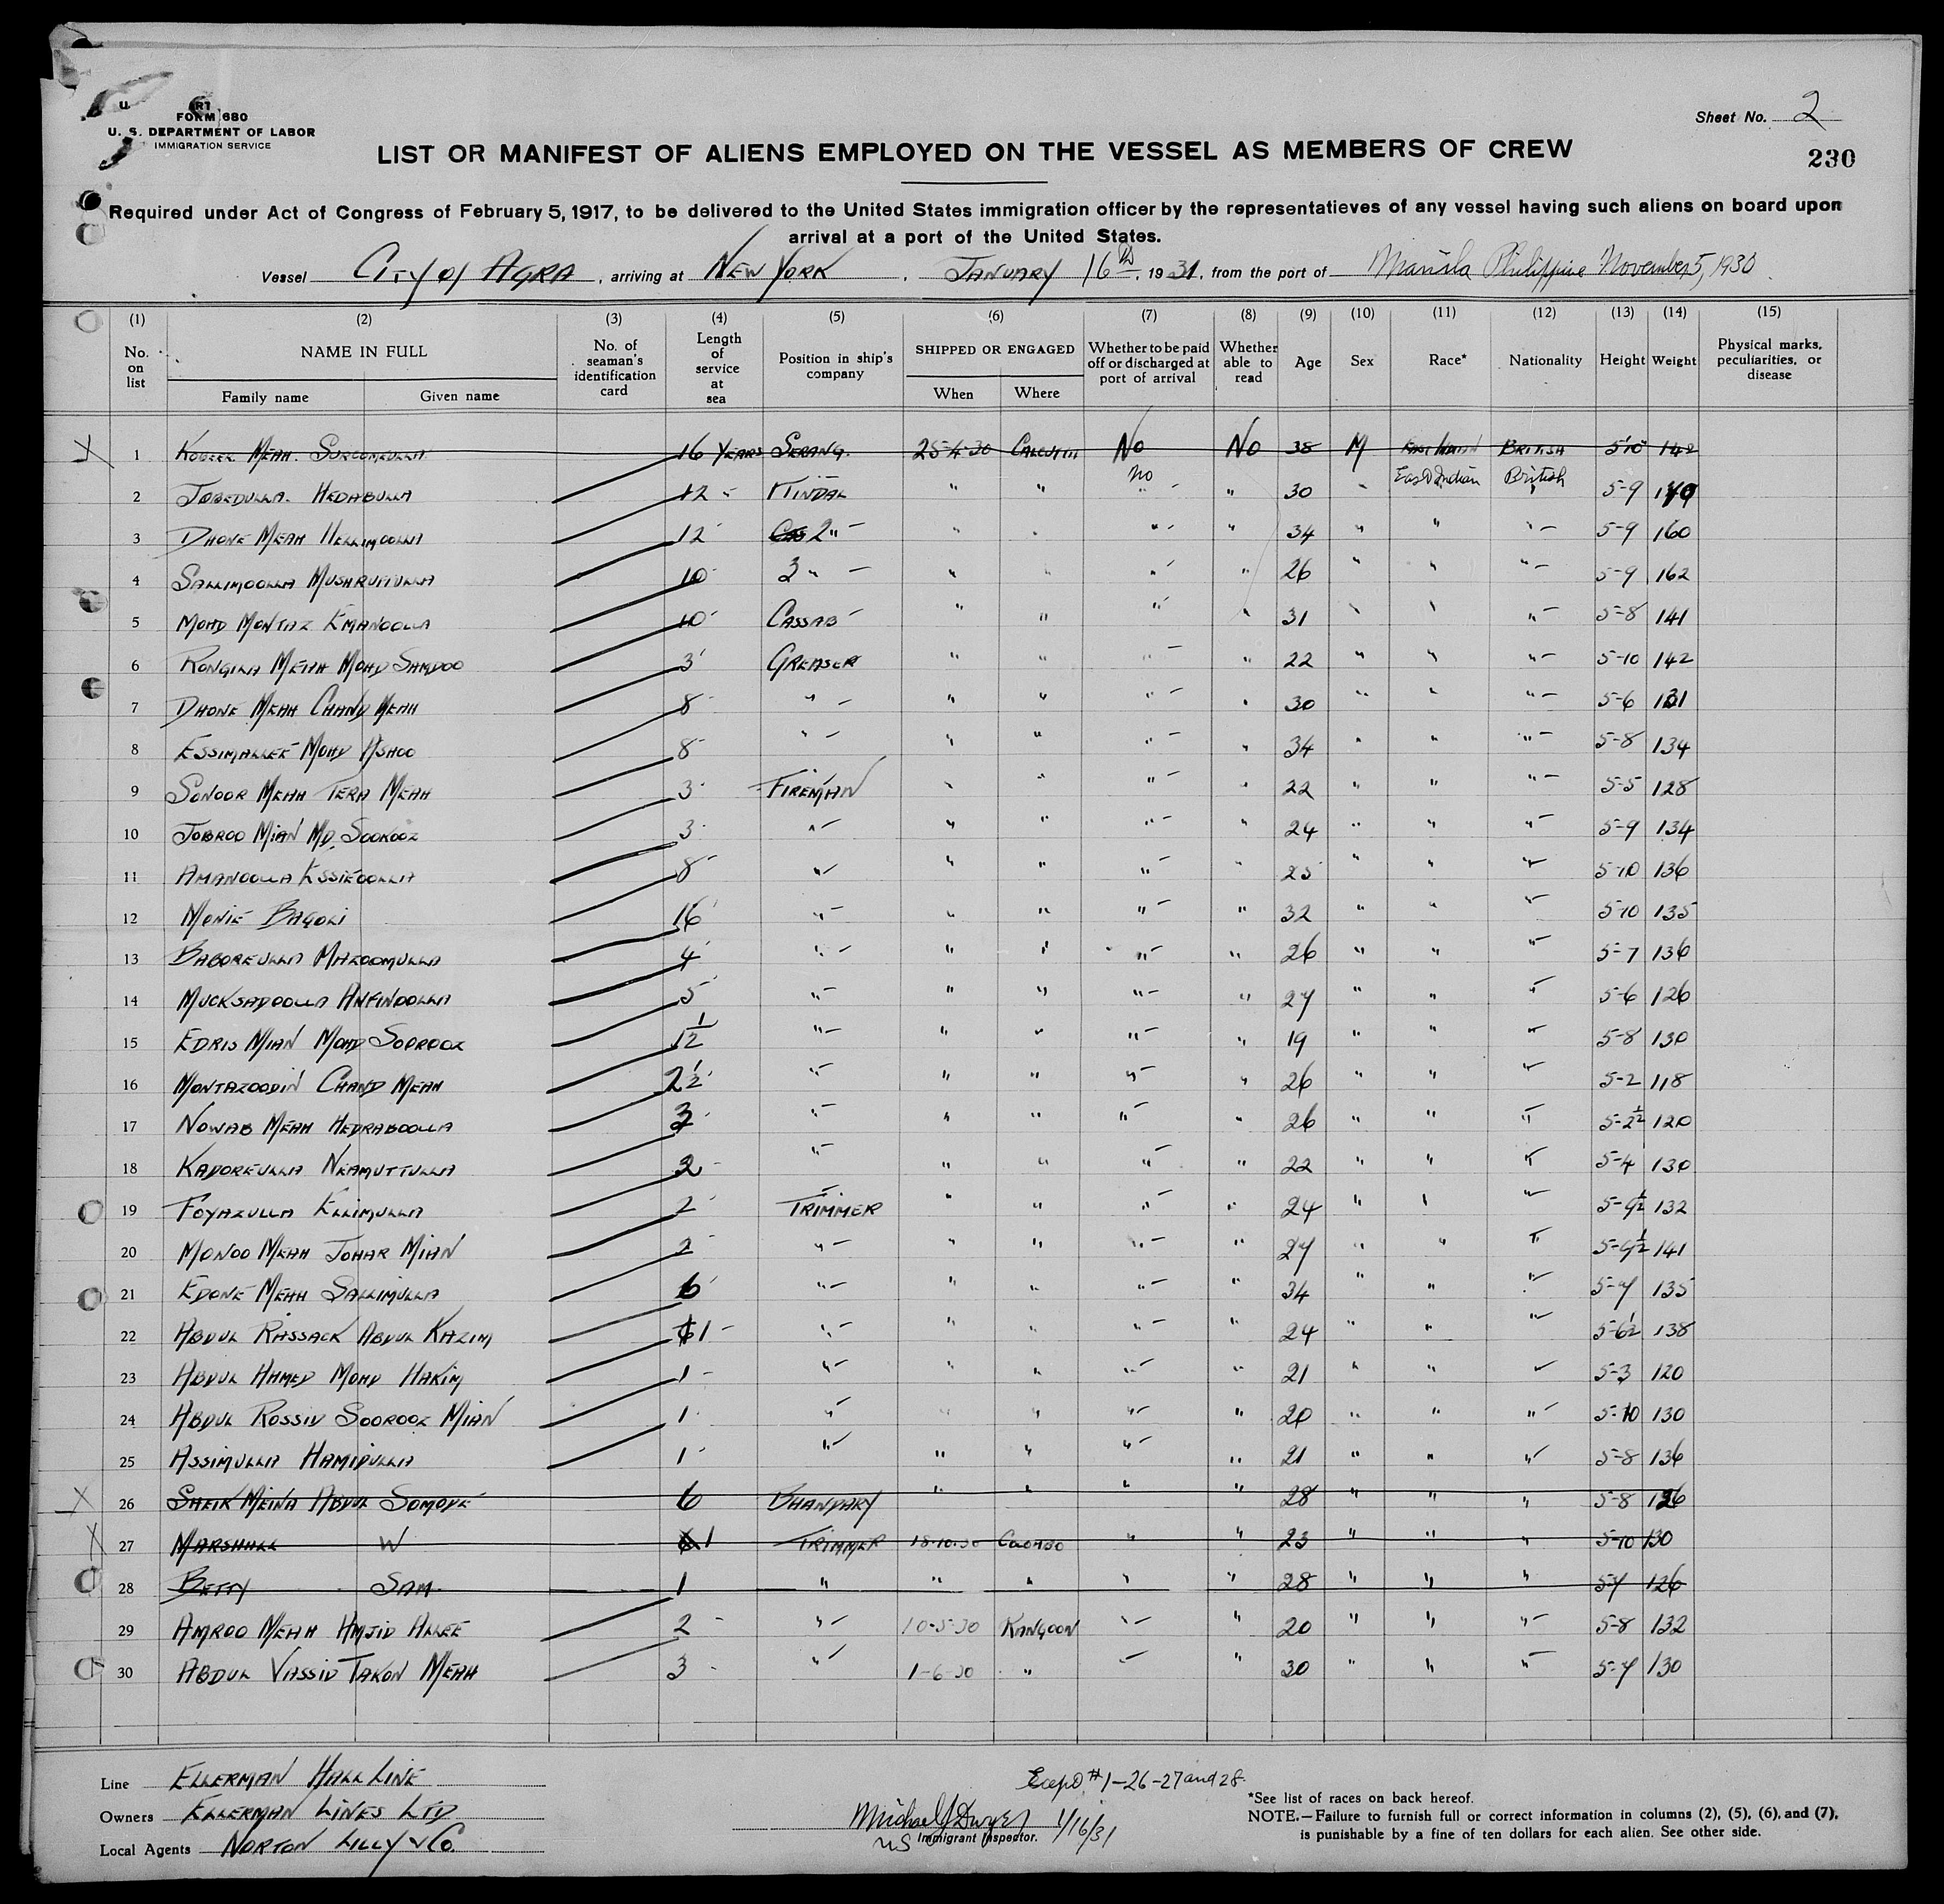 FORM 680
U. S. DEPARTMENT OF LABOR
IMMIGRATION SERVICE
Sheet No. 2
LIST OR MANIFEST OF ALIENS EMPLOYED ON THE VESSEL AS MEMBERS OF CREW
230
Required under Act of Congress of February 5, 1917, to be delivered to the United States immigration officer by the representatieves of any vessel having such aliens on board upon
arrival at a port of the United States.
Vessel CITY OF AGRA, arriving at NEW YORK, JANUARY 16th, 1931, from the port of Manila Philippine November 5, 1930
(1) (2) (3) (4) (5) (6) (7) (8) (9) (10) (11) (12) (13) (14) (15)
No. on list NAME IN FULL Family name Given name No. of seaman's identification card Length of service at sea Position in ship's company SHIPPED OR ENGAGED When Where Whether to be paid off or discharged at port of arrival Whether able to read Age Sex Race* Nationality Height Weight Physical marks, peculiarities, or disease
1 MEAH 16 YEARS SERANG. 25-4-30 CALCUTTA No No 38 M EAST INDIAN BRITISH 5-10 142
2 JOBEDULLA HEDABULLA 12 - TINDAL " " no " 30 " East Indian British 5-9
3 DHONE MEAH 12 2" - " " " " 34 " " " 5-9 160
4 SALLIMOOLLA 10 3 " - " " " " 26 " " " 5-9 162
5 MOHD MONTAZ EMANOOLLA 10 CASSAB " " " " 31 " " " 5-8 141
6 RONGILA MEAH MOHD SAMDOO 3 GREASER " " " " 22 " " " 5-10 142
7 DHONE MEAH CHAND MEAH 8 " " " " " 30 " " " 5-6 131
8 ESSIMALLEE MOHD ASHOO 8 " " " " " 34 " " " 5-8 134
9 SONOOR MEAH TERA MEAH 3 FIREMAN " " " " 22 " " " 5-5 128
10 JOBROO MIAN MD. SOOKOOZ 3 " " " " " 24 " " " 5-9 134
11 AMANOOLLA ESSIEOOLLA 8 " " " " " 25 " " " 5-10 136
12 MONIE BAGOLI 16 " " " " " 32 " " " 5-10 135
13 BABOREULLA MAZOOMULLA 4 " " " " " 26 " " " 5-7 136
14 MUCKSADOOLLA ANFINOOLLA 5 " " " " " 27 " " " 5-6 126
15 EDRIS MIAN MOHD SOOROOZ 1 1/2 " " " " " 19 " " " 5-8 130
16 MONTAZOODIN CHAND MEAH 2 1/2 " " " " " 26 " " " 5-2 118
17 NOWAB MEAH HEDRABOOLLA 3 " " " " " 26 " " " 5-2 1/2 120
18 KADOREULLA NEAMUTTULLA 2 " " " " " 22 " " " 5-4 130
19 FOYAZULLA ELLIMULLA 2 TRIMMER " " " " 24 " " " 132
20 MONOO MEAH JOHAR MIAN 2 " " " " " 27 " " " 141
21 EDONE MEAH SALLIMULLA 6 " " " " " 34 " " " 135
22 ABDUL RASSACK ABDUL KAZIM 1 " " " " " 24 " " " 5-6 1/2 138
23 ABDUL HAMED MOHD HAKIM 1 " " " " " 21 " " " 5-3 120
24 ABDUL ROSSID SOOROOZ MIAN 1 " " " " " 20 " " " 5-10 130
25 ASSIMULLA HAMIDULLA 1 " " " " " 21 " " " 5-8 136
26 SHEIK MEINA ABDUL SOMODE 6 BHANDARY " " " " 28 " " " 5-8
27 MARSHALL W 1 TRIMMER 18-10-30 COLOMBO " " 23 " " " 5-10 130
28 BETTY SAM 1 " " " " " 28 " " " 126
29 AMROO MEAH AMJID ALLEE 2 " 10-5-30 RANGOON " " 20 " " " 5-8 132
30 ABDUL VASSID TAKON MEAH 3 " 1-6-30 " " " 30 " " " 130
Line ELLERMAN HALL LINE
Owners ELLERMAN LINES LTD
Local Agents NORTON LILLY & Co.
#1-26-27 and 28.
Michael J Dwyer 1/16/31
US Immigrant Inspector.
*See list of races on back hereof.
NOTE.—Failure to furnish full or correct information in columns (2), (5), (6), and (7),
is punishable by a fine of ten dollars for each alien. See other side.